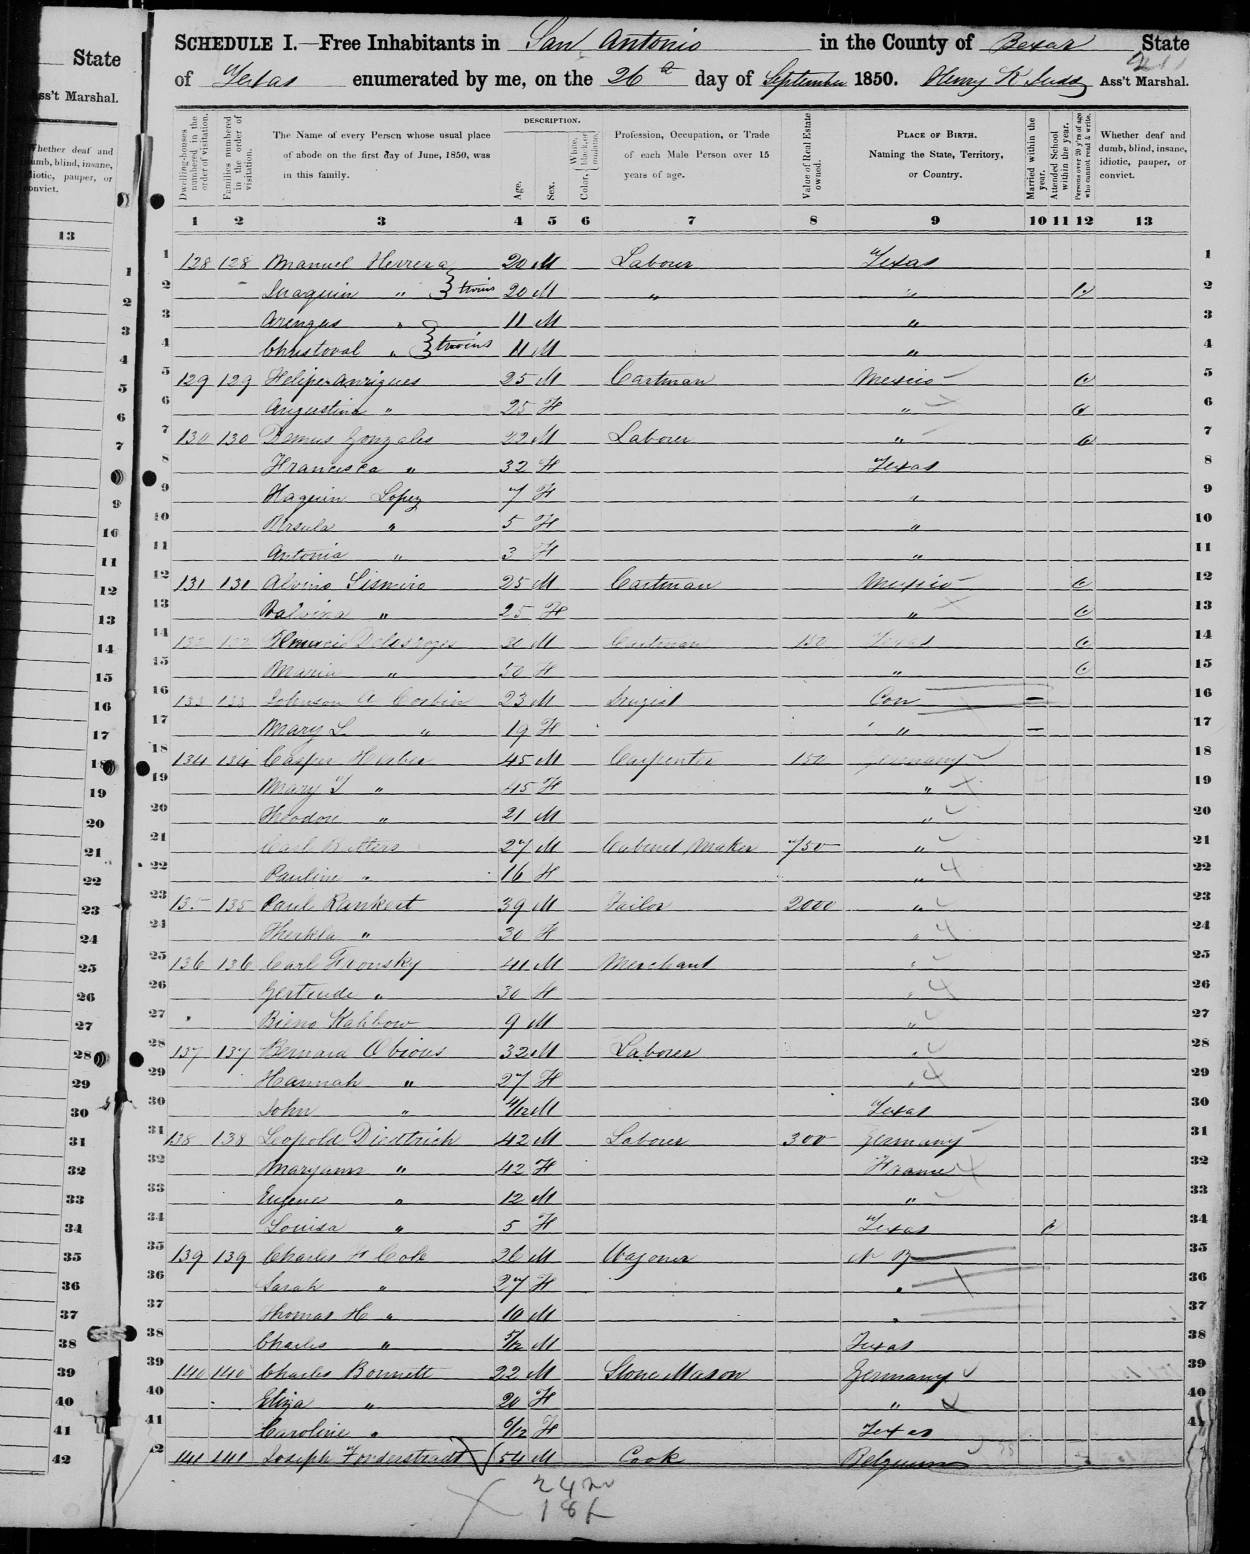 State
ss't Marshal.
Whether deaf and
dumb, blind, insane,
idiotic, pauper, or
convict.
13
SCHEDULE I.—Free Inhabitants in San Antonio in the County of Bexar State
of Texas enumerated by me, on the 26th day of September 1850. Henry K Judd Ass't Marshal.
Dwelling-houses numbered in the order of visitation.
Families numbered in the order of visitation.
The Name of every Person whose usual place of abode on the first day of June, 1850, was in this family.
DESCRIPTION.
Age.
Sex.
Color, White, black, or mulatto.
Profession, Occupation, or Trade of each Male Person over 15 years of age.
Value of Real Estate owned.
PLACE OF BIRTH.
Naming the State, Territory, or Country.
Married within the year.
Attended School within the year.
Persons over 20 y'rs of age who cannot read & write.
Whether deaf and dumb, blind, insane, idiotic, pauper, or convict.
1 2 3 4 5 6 7 8 9 10 11 12 13
1 128 128 Manuel Herrera 20 M Laborer Texas 1
2 " } twins 20 M " " 2
3 " 11 M " 3
4 Christoval " } twins 11 M " 4
5 129 129 25 M Cartman Mexico 5
6 Augustina " 25 F " 6
7 130 130 Gonzales 22 M Laborer " 7
8 Francisca " 32 F Texas 8
9 Lopez 7 F " 9
10 Ursula " 5 F " 10
11 Antonia " 3 F " 11
12 131 131 Alvino 25 M Cartman Mexico 12
13 " 25 F " 13
14 132 132 30 M Cartman 150 Texas 14
15 Maria " 50 F " 15
16 133 133 Johnson A Corbin 23 M Drugist Con 16
17 Mary L " 19 F " 17
18 134 134 Casper 45 M Carpenter 150 Germany 18
19 Mary T " 45 F " 19
20 Theodore " 21 M " 20
21 Carl 27 M Cabinet Maker 750 " 21
22 Pauline " 16 F " 22
23 135 135 Paul Rankert 39 M Tailor 2000 " 23
24 Therkla " 30 F " 24
25 136 136 Carl Fronsky 41 M Merchant " 25
26 Gertrude " 30 F " 26
27 Kabbow 9 M " 27
28 137 137 Bernard Obious 32 M Laborer " 28
29 Hannah " 27 F " 29
30 John " 4/12 M Texas 30
31 138 138 Leopold Diedtrich 42 M Laborer 300 Germany 31
32 Maryann " 42 F France 32
33 Eugene " 12 M " 33
34 Louisa " 5 F Texas 34
35 139 139 Charles F Cole 26 M Wagoner N Y 35
36 Sarah " 27 F " 36
37 Thomas H " 10 M " 37
38 Charles " 5/12 M Texas 38
39 140 140 Charles Bonnett 22 M Stone Mason Germany 39
40 Eliza " 20 F " 40
41 Caroline " 6/12 F Texas 41
141 141 Joseph 54 M Cook Belgium
24 m
18 f